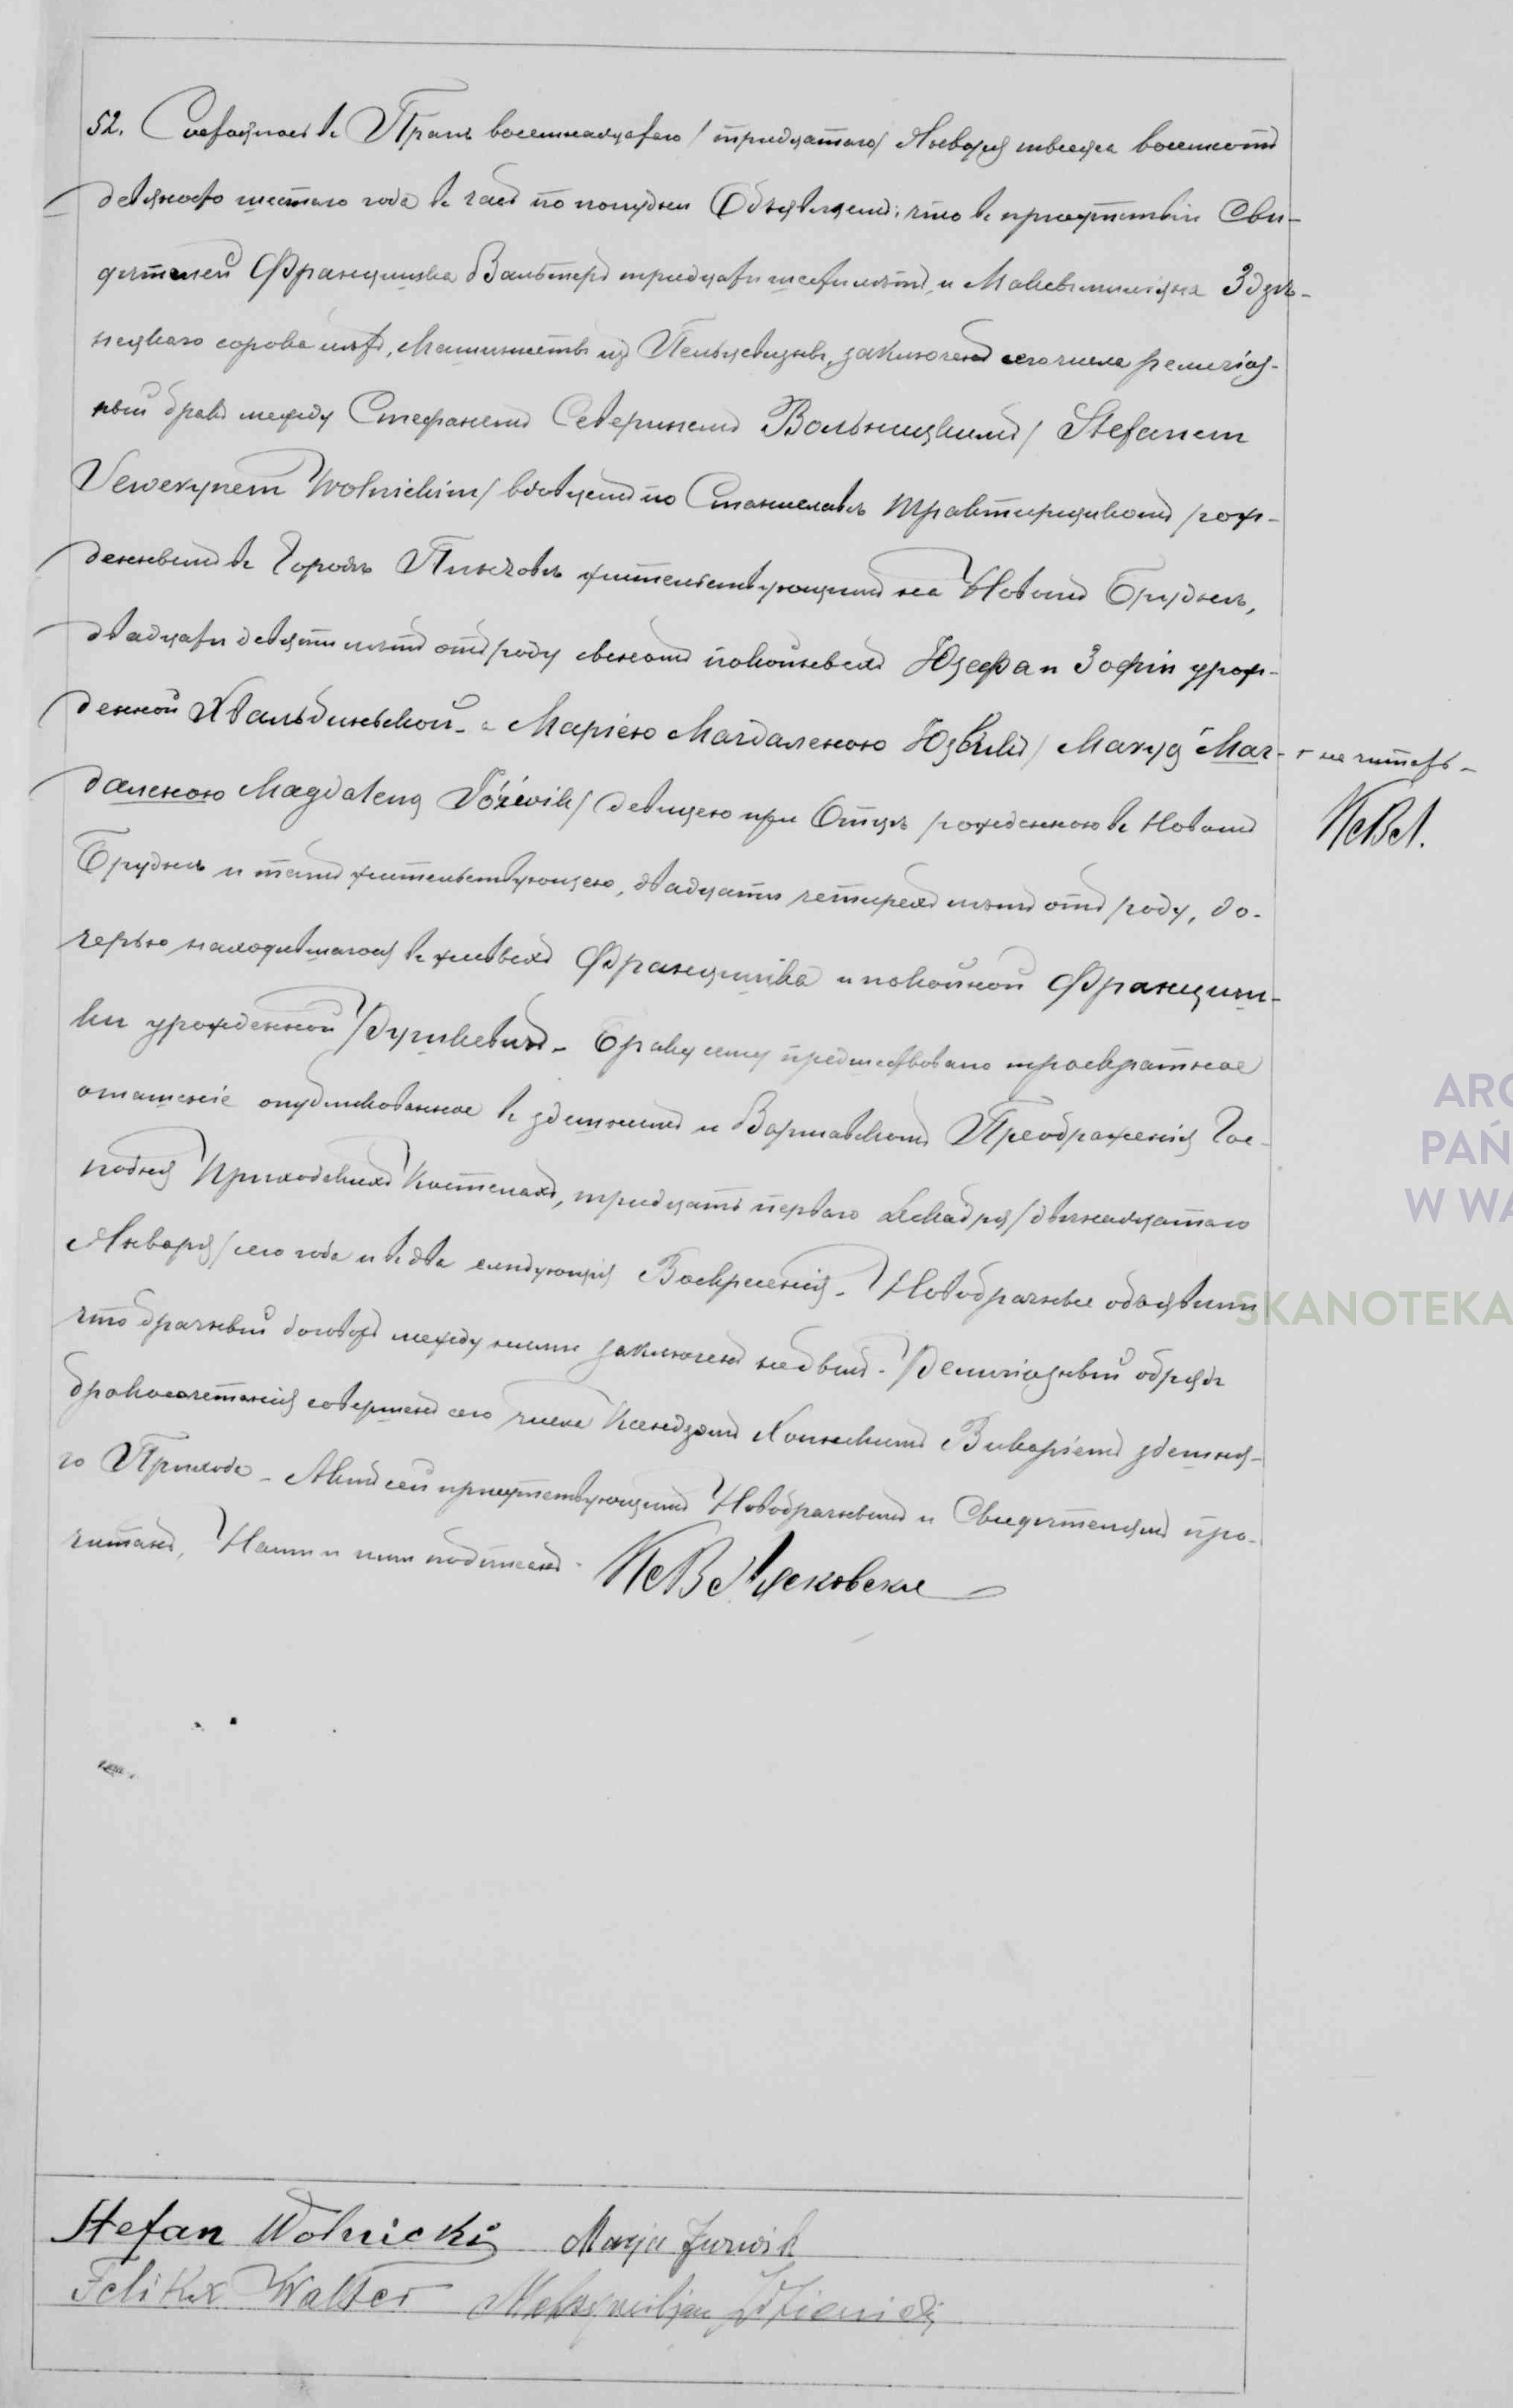 52. Состоялось въ Прагѣ восемнадцатаго /тридцатаго/ Января тысяча восемсотъ
девяносто шестаго года въ часъ по полудни Объявляемъ: что въ присутствіи Сви-
дѣтелей Францишка Вальтеръ тридцати шести лѣтъ, и Максымиліяна Здзѣ-
ницкаго сорока лѣтъ, Машинистъ изъ Пельцовизны, заключенъ сего числа религіоз-
ный бракъ между Стефаномъ Севериномъ Вольницкимъ / Stefanem
Sewerynem Wolnickim / вдовцемъ по Станиславѣ трактирщикомъ рож-
деннымъ въ Городѣ Пинчовѣ жительствующимъ на Новомъ Брудне,
двадцати девяти лѣтъ отъ роду сыномъ покойныхъ Юзефа и Зофіи урож-
денной Хвальбинской - а Маріею Магдаленою Юзвикъ / Maryą Маг- + не читать -
даленою Magdaleną Józwik / девицею при Отцѣ рожденною въ Новомъ КсВЛ.
Бруднѣ и тамъ жительствующею, двадцати четырехъ лѣтъ отъ роду, до-
черью находившагося въ живыхъ Францишка и покойной Францишъ-
ки урожденной - Браку сему предшествовало троекратное
оглашеніе опубликованное въ здешнемъ и Варшавскомъ Преображенія Гос-
подня Приходскихъ Костелахъ, тридцать перваго Декабря /двѣнадцатаго
Января/ сего года и въ два слѣдующія Воскресенія - Новобрачные объявили
что брачный договоръ между ними заключенъ небылъ. Религіозный обрядъ
бракосочетанія совершенъ сего числа Ксендзомъ Викаріемъ здешня-
го Прихода - Актъ сей присутствующимъ Новобрачнымъ и Свидѣтелямъ про-
читанъ, Нами и ими подписанъ. КсВЛясковски
Stefan Wolnicki Marja Juzwik
Feliks Walter Maksymiljan Zdzienicki
ARC
PAŃ
W WA
SKANOTEKA